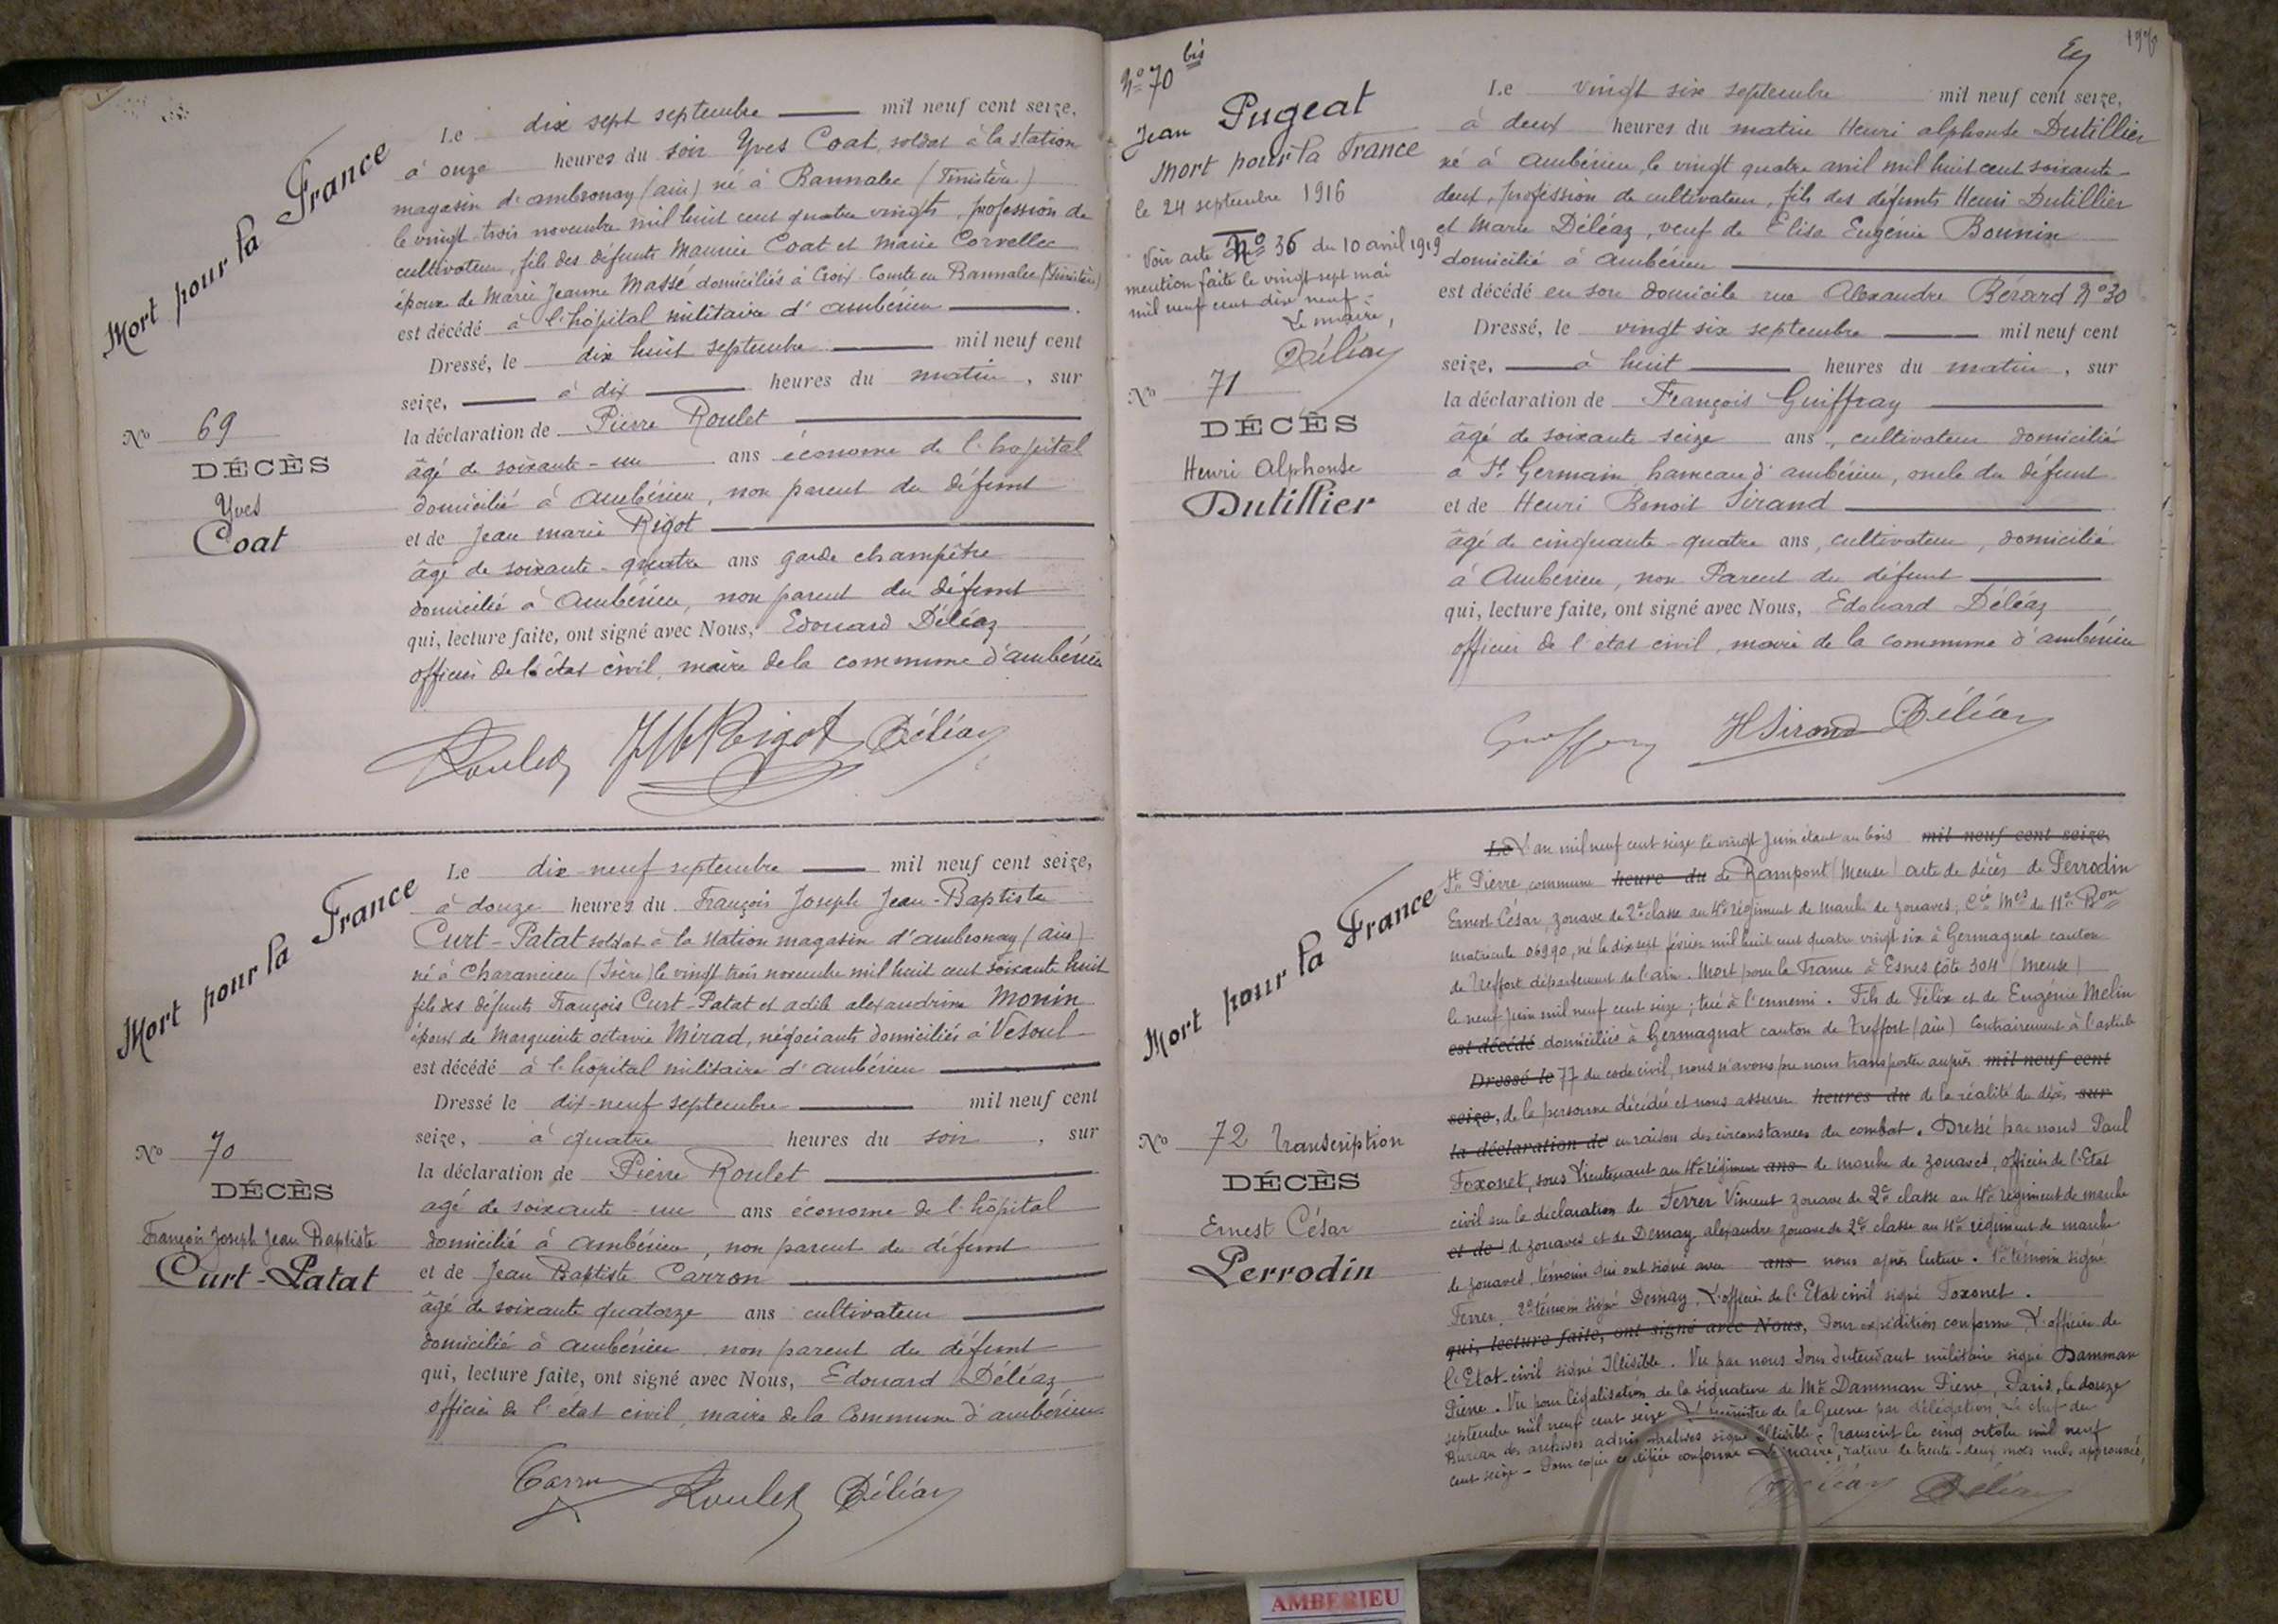 Mort pour la France
Le dix sept septembre mil neuf cent seize,
à onze heures du soir Yves Coat, soldat à la station
magasin d'ambronay (ain) né à Bannalec (Finistère)
le vingt-trois novembre mil huit cent quatre vingts, profession de
cultivateur, fils des défunts Maurice Coat et Marie Corvellec
époux de Marie Jeanne Massé domiciliés à Croix-Comte en Bannalec (Finistère)
est décédé à l'hôpital militaire d'ambérieu
Dressé, le dix huit septembre mil neuf cent
seize, à dix heures du matin, sur
No 69
DÉCÈS
Yves
Coat
la déclaration de Pierre Roulet
âgé de soixante-un ans économe de l'hopital
domicilié à Ambérieu, non parent du défunt
et de Jean marie Rigot
âgé de soixante-quatre ans garde champêtre
domicilié à Ambérieu, non parent du défunt
qui, lecture faite, ont signé avec Nous, Edouard Déléaz
officier de l'état civil, maire de la commune d'ambérieu
Roulet JM Rigot Déléaz
Mort pour la France
Le dix-neuf septembre mil neuf cent seize,
à douze heures du François Joseph Jean-Baptiste
Curt-Patat soldat à la station magasin d'ambronay (ain)
né à Charancieu (Isère) le vingt trois novembre mil huit cent soixante huit
fils des défunts François Curt-Patat et adèle alexandrine Monin
époux de Marguerite octavie Mérad, négociants domiciliés à Vesoul
est décédé à l'hôpital militaire d'ambérieu
Dressé le dix-neuf septembre mil neuf cent
seize, à quatre heures du soir, sur
No 70
DÉCÈS
François Joseph Jean Baptiste
Curt-Patat
la déclaration de Pierre Roulet
agé de soixante-un ans économe de l'hôpital
domicilié à Ambérieu, non parent du défunt
et de Jean Baptiste Carron
âgé de soixante quatorze ans cultivateur
domicilié à ambérieu non parent du défunt
qui, lecture faite, ont signé avec Nous, Edouard Déléaz
officier de l'état civil, maire de la Commune d'ambérieu
Carron Roulet Déléaz
No 70 bis
Jean Pugeat
Mort pour la France
le 24 septembre 1916
Voir acte No 36 du 10 avril 1919
mention faite le vingt-sept mai
mil neuf cent dix neuf
Le maire,
Déléaz
No 71
DÉCÈS
Henri Alphonse
Dutillier
Le vingt six septembre mil neuf cent seize,
à deux heures du matin Henri alphonse Dutillier
né à Ambérieu, le vingt quatre avril mil huit cent soixante-
deux, profession de cultivateur, fils des défunts Henri Dutillier
et Marie Déléaz, veuf de Elisa Eugénie Bonnin
domicilié à Ambérieu
est décédé en son domicile rue Alexandre Bérard No 30
Dressé, le vingt six septembre mil neuf cent
seize, à huit heures du matin, sur
la déclaration de François Guiffray
âgé de soixante-seize ans, cultivateur domicilié
à St Germain hameau d'ambérieu, oncle du défunt
et de Henri Benoit Sirand
âgé de cinquante-quatre ans, cultivateur, domicilié
à Ambérieu, non Parent du défunt
qui, lecture faite, ont signé avec Nous, Edouard Déléaz
officier de l'etat civil, maire de la commune d'ambérieu
H Sirand Déléaz
Mort pour la France
No 72 Transcription
DÉCÈS
Ernest César
Perrodin
Le L'an mil neuf cent seize le vingt Juin étant au bois mil neuf cent seize,
St Pierre, commune heure du de Rampont (Meuse) acte de décès de Perrodin
Ernest César, zouave de 2e classe au 4e régiment de marche de zouaves, Cie Mes du 11e Bon
matricule 06990, né le dix sept février mil huit cent quatre vingt six à Germagnat canton
de Treffort département de l'ain. Mort pour la France à Esnes côte 304 (Meuse)
le neuf juin mil neuf cent seize; tué à l'ennemi. Fils de Félix et de Eugénie Melin
est décédé domiciliés à Germagnat canton de Treffort (ain) Contrairement à l'article
Dressé le 77 du code civil, nous n'avons pu nous transporter auprès mil neuf cent
seize, de la personne décédée et nous assurer heures du de la réalité du décès, sur
la déclaration de en raison des circonstances du combat. Dressé par nous Paul
Foxonet, sous lieutenant au 4e régiment ans de marche de zouaves, officier de l'Etat
civil sur la déclaration de Ferrer Vincent zouave de 2e classe au 4e régiment de marche
et de de zouaves et de Demay alexandre zouave de 2e classe au 4e régiment de marche
de zouaves, témoins qui ont signé avec ans nous après lecture. 1er témoin signé
Ferrer, 2e témoin signé Demay, L'officier de l'Etat civil signé Foxonet.
qui, lecture faite, ont signé avec Nous, Pour expédition conforme, L'officier de
l'Etat-civil signé Illisible. Vu par nous Sous Intendant militaire signé Damman
Pierre. Vu pour légalisation de la signature de Mr Damman Pierre, Paris, le douze
septembre mil neuf cent seize Le ministre de la Guerre par délégation, Le chef du
Bureau des archives administratives signé Illisible; Transcrit le cinq octobre mil neuf
cent seize - Pour copie certifiée conforme Le maire, rature de trente-deux mots nuls approuvée,
Déléaz Déléaz
AMBERIEU